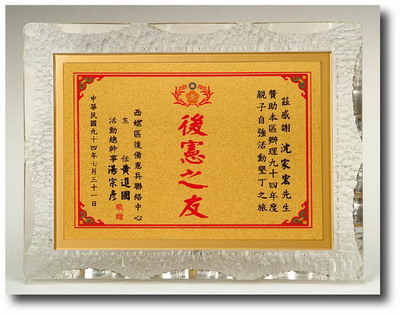 茲感謝 沈家宏先生
贊助本區辦理九十四年度
親子自強活動墾丁之旅
後憲之友
西螺區後備憲兵聯絡中心
主任 黃進國
活動總幹事 湯宗彥 敬贈
中華民國九十四年七月三十一日